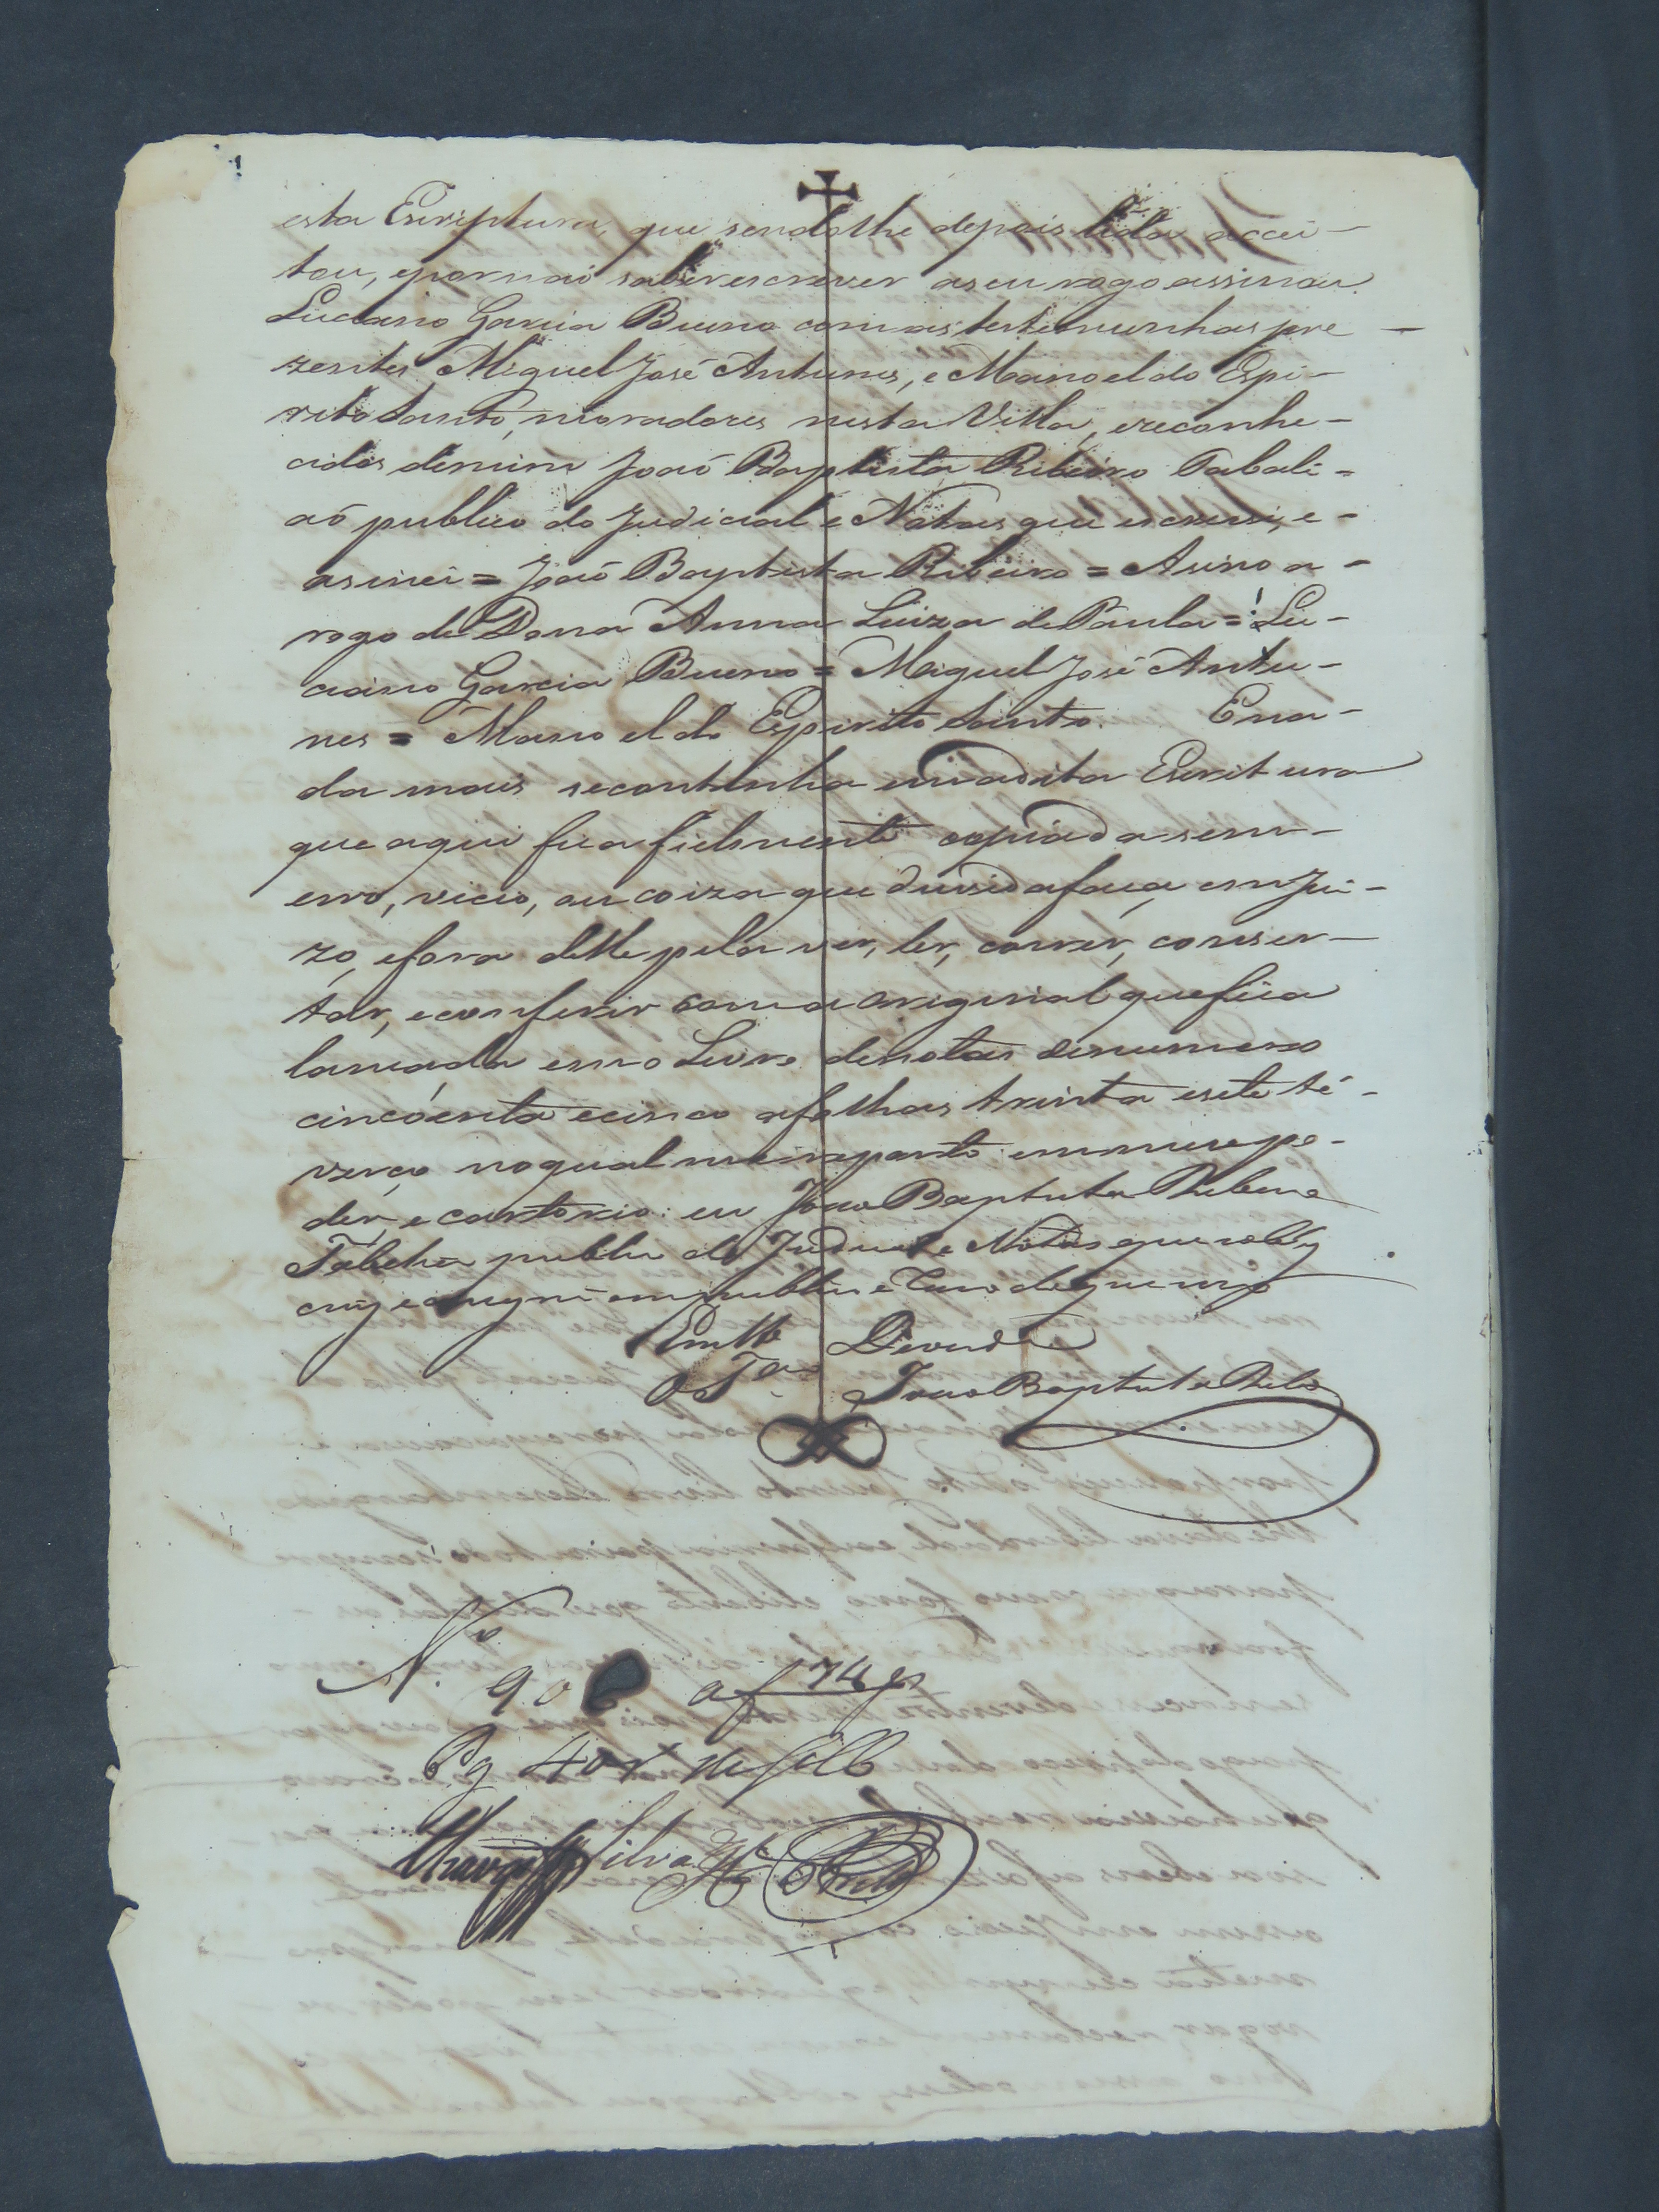 esta Escriptura, que sendolhe depois lida accei-
tou, epornaõ saber escrever aseu rogo assinou
Luciano Garcia Bueno com as testemunhas pre
zentes Miguel José Antunes, e Manoel do Espi-
rito Santo, moradores nesta Villa, ereconhe-
cidos demim Joaõ Baptista Ribeiro Tabali=
aõ publico do Judicial e Notas que escrevi, e-
asinei = Joaõ Baptista Ribeiro = Asino a-
rogo de Dona Anna Luiza de Paula = Lu-
ciano Garcia Bueno = Miguel José Antu-
nes = Manoel do Espirito Santo. Ena-
da mais secontinha emadita Escritura
que aqui fica fielmente copiada sem-
erro, vicio, ou coiza que duvida faça, em Jui-
zo, efora delle pela ver, ler, correr, conser-
tar, econferir com a original que fica
lançada em o Livro denotas denumero
cincoenta ecinco afolhas trinta esete té-
verço noqual me reporto emmeo po-
der, e cartorio: eu Joao Baptista Ribeiro
publico do Judicial e Notas que
em publico e Razo de que uzo
Em Tto de Verdade
Joao Baptista Ribro
N.o 90 af 74
Pg 40r de Sello
Chaves Silva